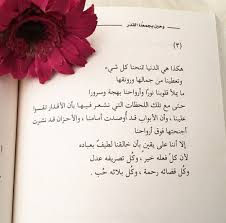 وحين يجمعنا القدر
(٣)
هكذا هي الدنيا تمنحنا كل شيء
وتعطينا من جمالها ورونقها
ما يملأ قلوبنا نورًا وأرواحنا بهجة وسرورا
حتى مع تلك اللحظات التي نشعر فيها بأن الأقدار تقسوا
علينا، وأن الأبواب قد أوصدت أمامنا، والأحزان قد نشرت
أجنحتها فوق أرواحنا
إلا أننا على يقين بأن خالقنا لطيف بعباده
لأن كل فعله خير، وكل تصريفه عدل
وكل قضائه رحمة، وكل بلائه حُب.